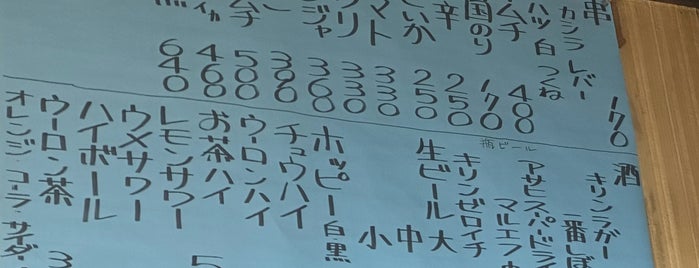 串
カシラ レバー
ハツ 白 つくね 170
ムチ 400
国のり 170
辛 250
いか 250
マト 330
リ 330
ジャ 360
390
ムチ 500
イカ 460
640
酒
キリンラガー
一番しぼ
瓶ビール
アサヒスーパードライ
マルエフ
キリンゼロイチ
生ビール 大
中
小
ホッピー 白・黒
チュウハイ
ウーロンハイ
お茶ハイ 5
レモンサワー
ウメサワー
ハイボール
ウーロン茶 3
オレンジ・コーラ・サイダー